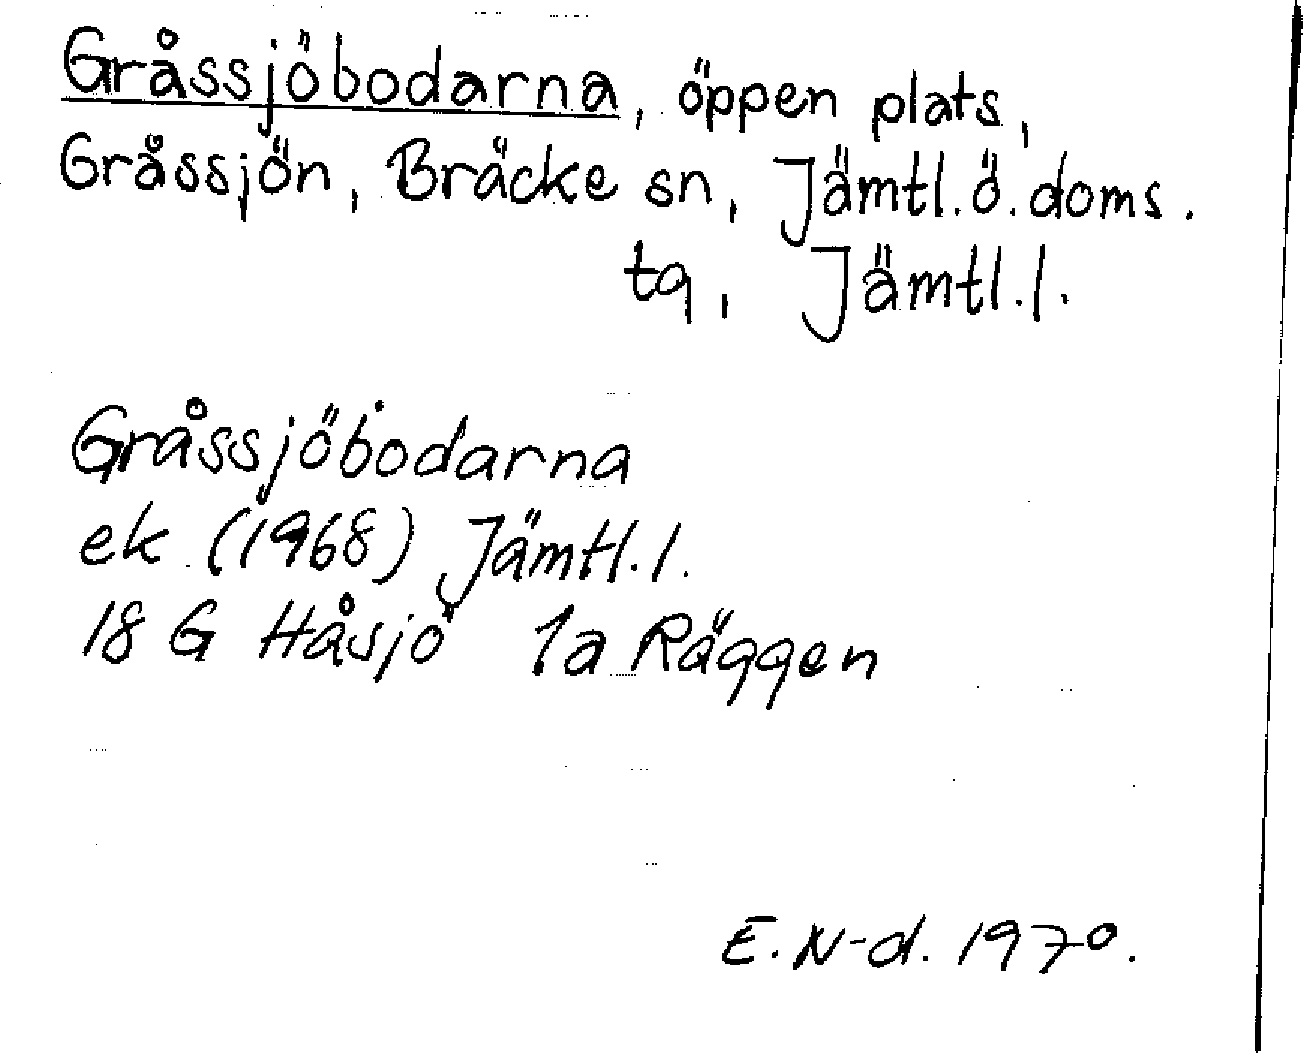 Gråssjöbodarna, öppen plats,
Gråssjön, Bräcke sn, Jämtl.ö.doms.
tg, Jämtl.l.
Gråssjöbodarna
ek (1968) Jämtl.l.
18 G Håsjö 1a Räggen
E.N-d. 1970.